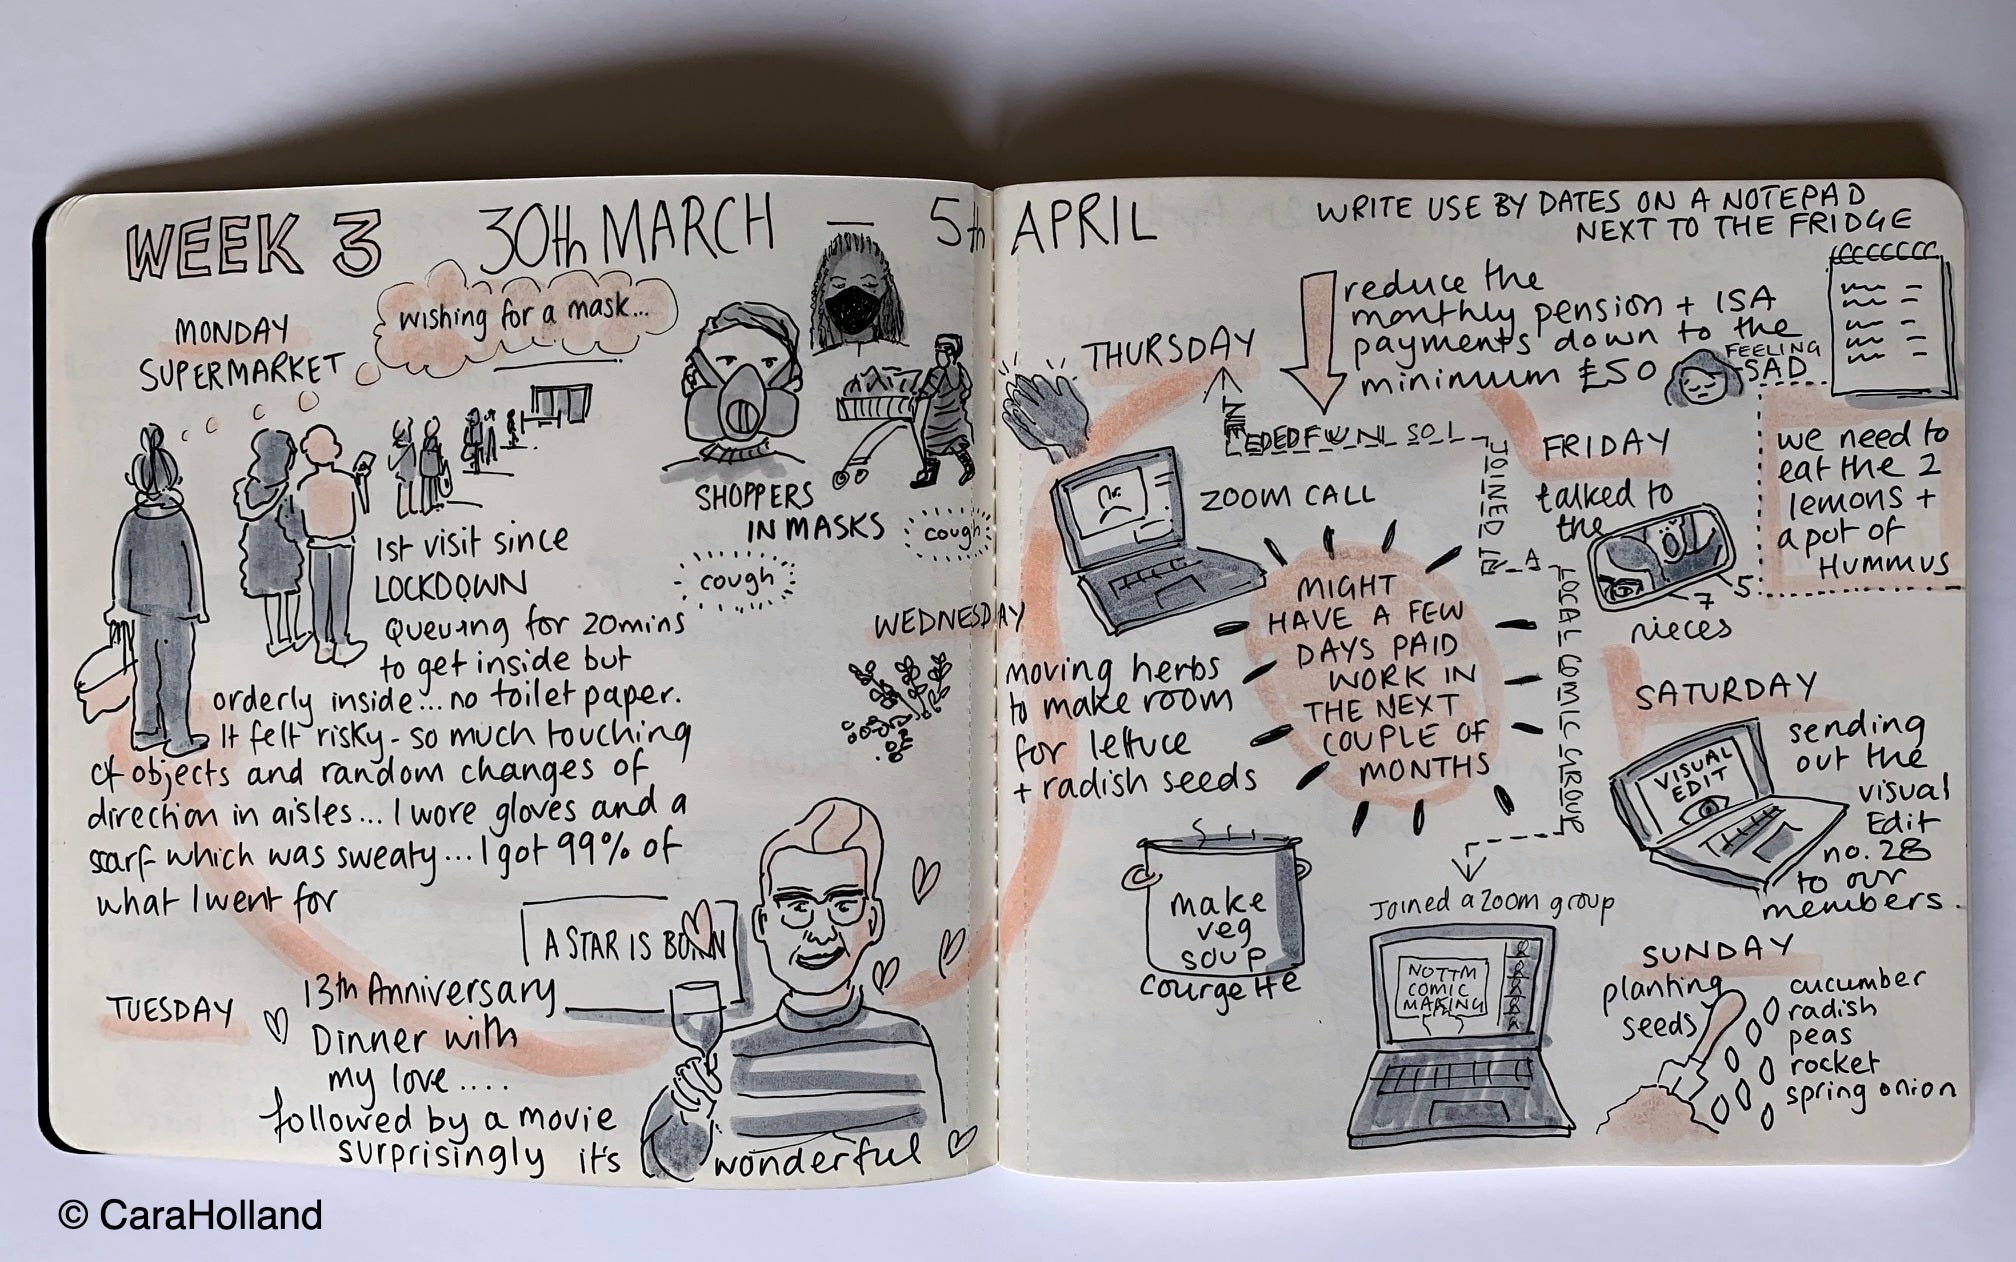 WEEK 3 30th MARCH — 5th APRIL
MONDAY
SUPERMARKET
wishing for a mask...
1st visit since
LOCKDOWN
Queuing for 20mins
to get inside but
orderly inside... no toilet paper.
It felt risky - so much touching
of objects and random changes of
direction in aisles... I wore gloves and a
scarf which was sweaty... I got 99% of
what I went for
SHOPPERS
IN MASKS
cough
cough
TUESDAY
13th Anniversary
Dinner with
my love ....
followed by a movie
surprisingly it's wonderful
A STAR IS BORN
WEDNESDAY
moving herbs
to make room
for lettuce
+ radish seeds
make
veg
soup
courgette
THURSDAY
ZOOM CALL
MIGHT
HAVE A FEW
DAYS PAID
WORK IN
THE NEXT
COUPLE OF
MONTHS
NEEDED FUN SO I
JOINED IN A
LOCAL COMIC GROUP
Joined a Zoom group
NOTTM
COMIC
MAKING
reduce the
monthly pension + ISA
payments down to the
minimum £50
FEELING
SAD
WRITE USE BY DATES ON A NOTEPAD
NEXT TO THE FRIDGE
we need to
eat the 2
lemons +
a pot of
HUMMUS
FRIDAY
talked to
the
5
7
nieces
SATURDAY
VISUAL
EDIT
sending
out the
visual
Edit
no. 28
to our
members.
SUNDAY
planting
seeds
cucumber
radish
peas
rocket
spring onion
© CaraHolland